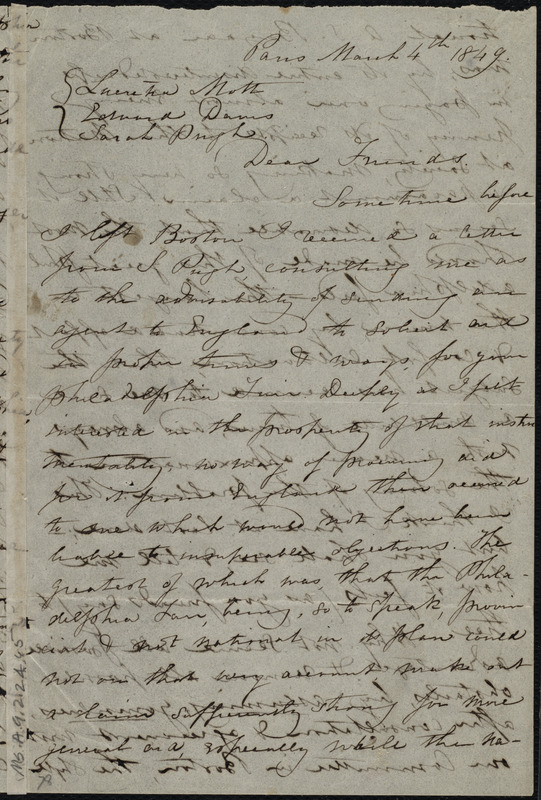 Paris March 4th 1849.
Lucretia Mott
Edward Davis
Sarah Pugh
Dear Friends.
Sometime before
I left Boston I received a letter
from S Pugh consulting me as
to the advisability of sending an
agent to England to solicit aid
in proper times & ways, for your
Philadelphia Fair. Deeply as I felt
interested in the prosperity of that instru
mentality, no way of procuring aid
for it from England then occurred
to me which would not have been
liable to insuperable objections. The
greatest of which was that the Phila-
delphia Fair, being, so to speak, provin
cial & not national in its plan could
not on that very account make out
a claim sufficiently strong for more
general aid, especially while the Na-
Ms.A.9.2.24.45